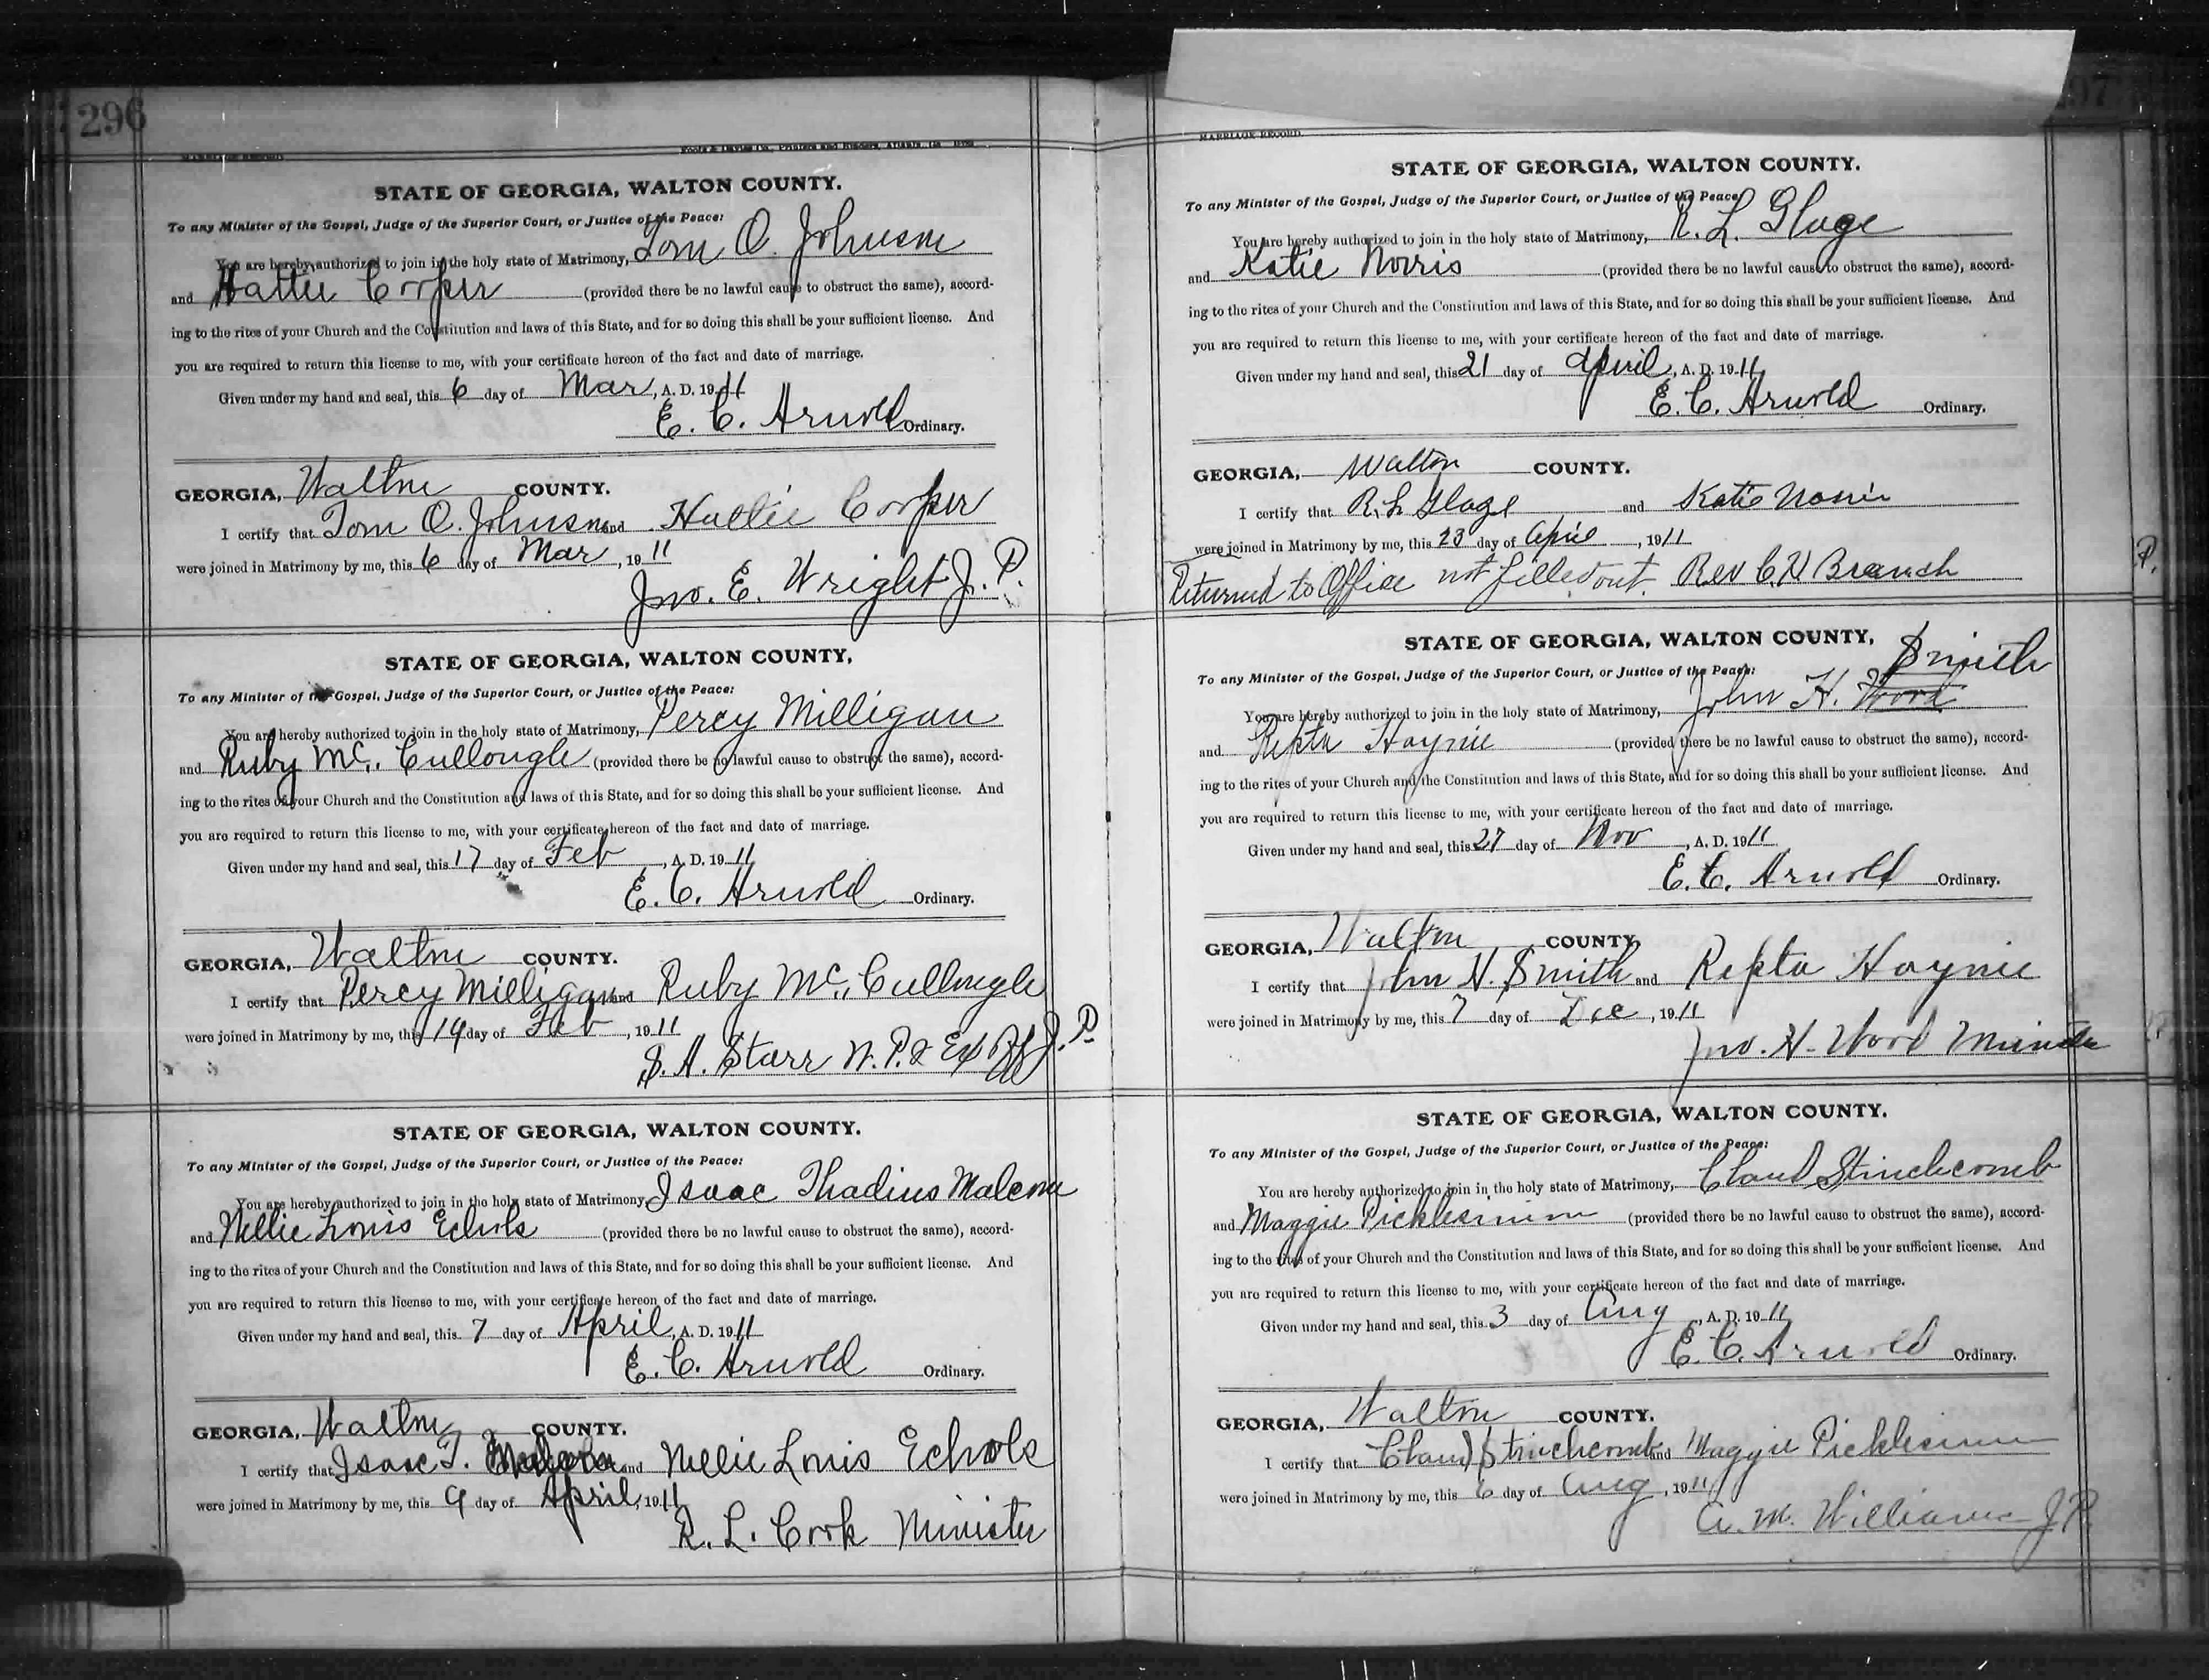 296
MARRIAGE RECORD
Foote & Davies Co., Printers and Binders, Atlanta, Ga.
STATE OF GEORGIA, WALTON COUNTY.
To any Minister of the Gospel, Judge of the Superior Court, or Justice of the Peace:
You are hereby authorized to join in the holy state of Matrimony, Tom O. Johnson
and Hattie Cooper (provided there be no lawful cause to obstruct the same), accord-
ing to the rites of your Church and the Constitution and laws of this State, and for so doing this shall be your sufficient license. And
you are required to return this license to me, with your certificate hereon of the fact and date of marriage.
Given under my hand and seal, this 6 day of Mar, A. D. 1911
E. C. Arnold Ordinary.
GEORGIA, Walton COUNTY.
I certify that Tom O. Johnson and Hattie Cooper
were joined in Matrimony by me, this 6 day of Mar, 1911
Jno. E. Wright J. P.
STATE OF GEORGIA, WALTON COUNTY,
To any Minister of the Gospel, Judge of the Superior Court, or Justice of the Peace:
You are hereby authorized to join in the holy state of Matrimony, Percy Milligan
and Ruby Mc. Cullough (provided there be no lawful cause to obstruct the same), accord-
ing to the rites of your Church and the Constitution and laws of this State, and for so doing this shall be your sufficient license. And
you are required to return this license to me, with your certificate hereon of the fact and date of marriage.
Given under my hand and seal, this 17 day of Feb, A. D. 1911
E. C. Arnold Ordinary.
GEORGIA, Walton COUNTY.
I certify that Percy Milligan and Ruby Mc. Cullough
were joined in Matrimony by me, this 19 day of Feb, 1911
S. A. Starr N. P. & Ex Off J. P.
STATE OF GEORGIA, WALTON COUNTY.
To any Minister of the Gospel, Judge of the Superior Court, or Justice of the Peace:
You are hereby authorized to join in the holy state of Matrimony, Isaac Thadius Malcom
and Nellie Louis Echols (provided there be no lawful cause to obstruct the same), accord-
ing to the rites of your Church and the Constitution and laws of this State, and for so doing this shall be your sufficient license. And
you are required to return this license to me, with your certificate hereon of the fact and date of marriage.
Given under my hand and seal, this 7 day of April, A. D. 1911
E. C. Arnold Ordinary.
GEORGIA, Walton COUNTY.
I certify that Isaac T. and Nellie Louis Echols
were joined in Matrimony by me, this 9 day of April, 1911
R. L. Cook Minister
MARRIAGE RECORD.
STATE OF GEORGIA, WALTON COUNTY.
To any Minister of the Gospel, Judge of the Superior Court, or Justice of the Peace
You are hereby authorized to join in the holy state of Matrimony, R. L. Glaze
and Katie Norris (provided there be no lawful cause to obstruct the same), accord-
ing to the rites of your Church and the Constitution and laws of this State, and for so doing this shall be your sufficient license. And
you are required to return this license to me, with your certificate hereon of the fact and date of marriage.
Given under my hand and seal, this 21 day of April, A. D. 1911
E. C. Arnold Ordinary.
GEORGIA, Walton COUNTY.
I certify that R. L Glaze and Katie Norris
were joined in Matrimony by me, this 23 day of April, 1911
Returned to Office not filled out. Rev C. H Branch
STATE OF GEORGIA, WALTON COUNTY,
To any Minister of the Gospel, Judge of the Superior Court, or Justice of the Peace:
Smith
You are hereby authorized to join in the holy state of Matrimony, John H. Wood
and Repta Haynie (provided there be no lawful cause to obstruct the same), accord-
ing to the rites of your Church and the Constitution and laws of this State, and for so doing this shall be your sufficient license. And
you are required to return this license to me, with your certificate hereon of the fact and date of marriage.
Given under my hand and seal, this 27 day of Nov, A. D. 1911
E. C. Arnold Ordinary.
GEORGIA, Walton COUNTY
I certify that John H. Smith and Repta Haynie
were joined in Matrimony by me, this 7 day of Dec, 1911
Jno. H. Wood Minister
STATE OF GEORGIA, WALTON COUNTY.
To any Minister of the Gospel, Judge of the Superior Court, or Justice of the Peace:
You are hereby authorized to join in the holy state of Matrimony, Claud Stinchcomb
and Maggie Picklesimer (provided there be no lawful cause to obstruct the same), accord-
ing to the rites of your Church and the Constitution and laws of this State, and for so doing this shall be your sufficient license. And
you are required to return this license to me, with your certificate hereon of the fact and date of marriage.
Given under my hand and seal, this 3 day of Aug, A. D. 1911
E. C. Arnold Ordinary.
GEORGIA, Walton COUNTY.
I certify that Claud Stinchcomb and Maggie Picklesimer
were joined in Matrimony by me, this 6 day of Aug, 1911
A. M. Williams J. P.